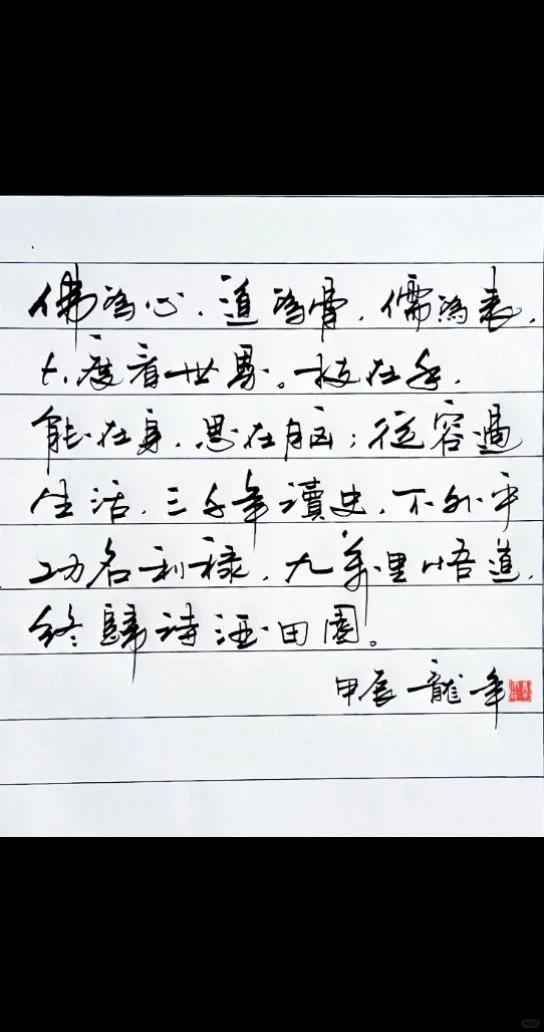 佛為心，道為骨，儒為表，
大度看世界。技在手，
能在身，思在腦；從容過
生活，三千年讀史，不外乎
功名利祿，九萬里悟道，
終歸詩酒田園。
甲辰龍年